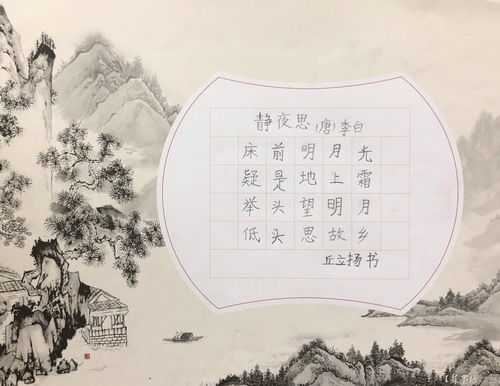 静夜思(唐)李白
床前明月光
疑是地上霜
举头望明月
低头思故乡
丘立扬书